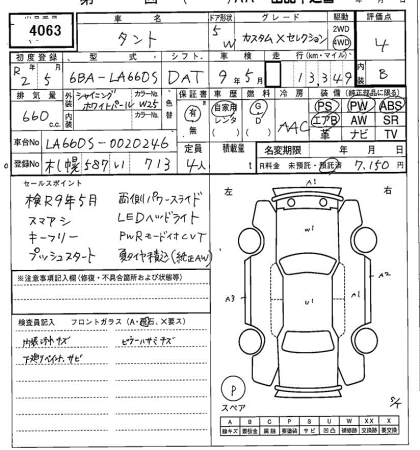 4063
車 名
タント
ドア形状
5
W
グレード
カスタム Xセレクション
駆動
2WD
4WD
評価点
4
初度登録
R 2年 5月
型式
6BA-LA660S
シフト
DAT
車検
9年5月
走行(km・マイル)
13,349
内装
B
排気量
660 c.c.
外装
シャイニングホワイトパール
カラーNo.
W25
内装
カラーNo.
色替
保証書
有
無
車歴
自家用
レンタ
燃料
G
D
冷房
AAC
装備(純正部品に限る)
PS PW ABS
エアB AW SR
革 ナビ TV
車台No
LA660S-0020246
登録No
札幌 587 い 713
定員
4人
積載量
t
名変期限 年 月 日
R料金 未預託・預託済 7,150 円
セールスポイント
検R9年5月 両側パワースライド
スマアシ LEDヘッドライト
キーフリー PWRモード付CVT
プッシュスタート 夏タイヤ積込(純正AW)
※注意事項記入欄(修復・不具合箇所および状態)
検査員記入 フロントガラス(A・飛石、X要ス)
内張ミゾキズ ピラーハサミキズ
下廻りペイント、サビ
左 右
A1
W1
U1
A3
A2
P
スペア
A B C P S U W X XX
線キズ 要板金 腐蝕 要塗装 サビ 凹凸 補修跡 交換跡 要交換